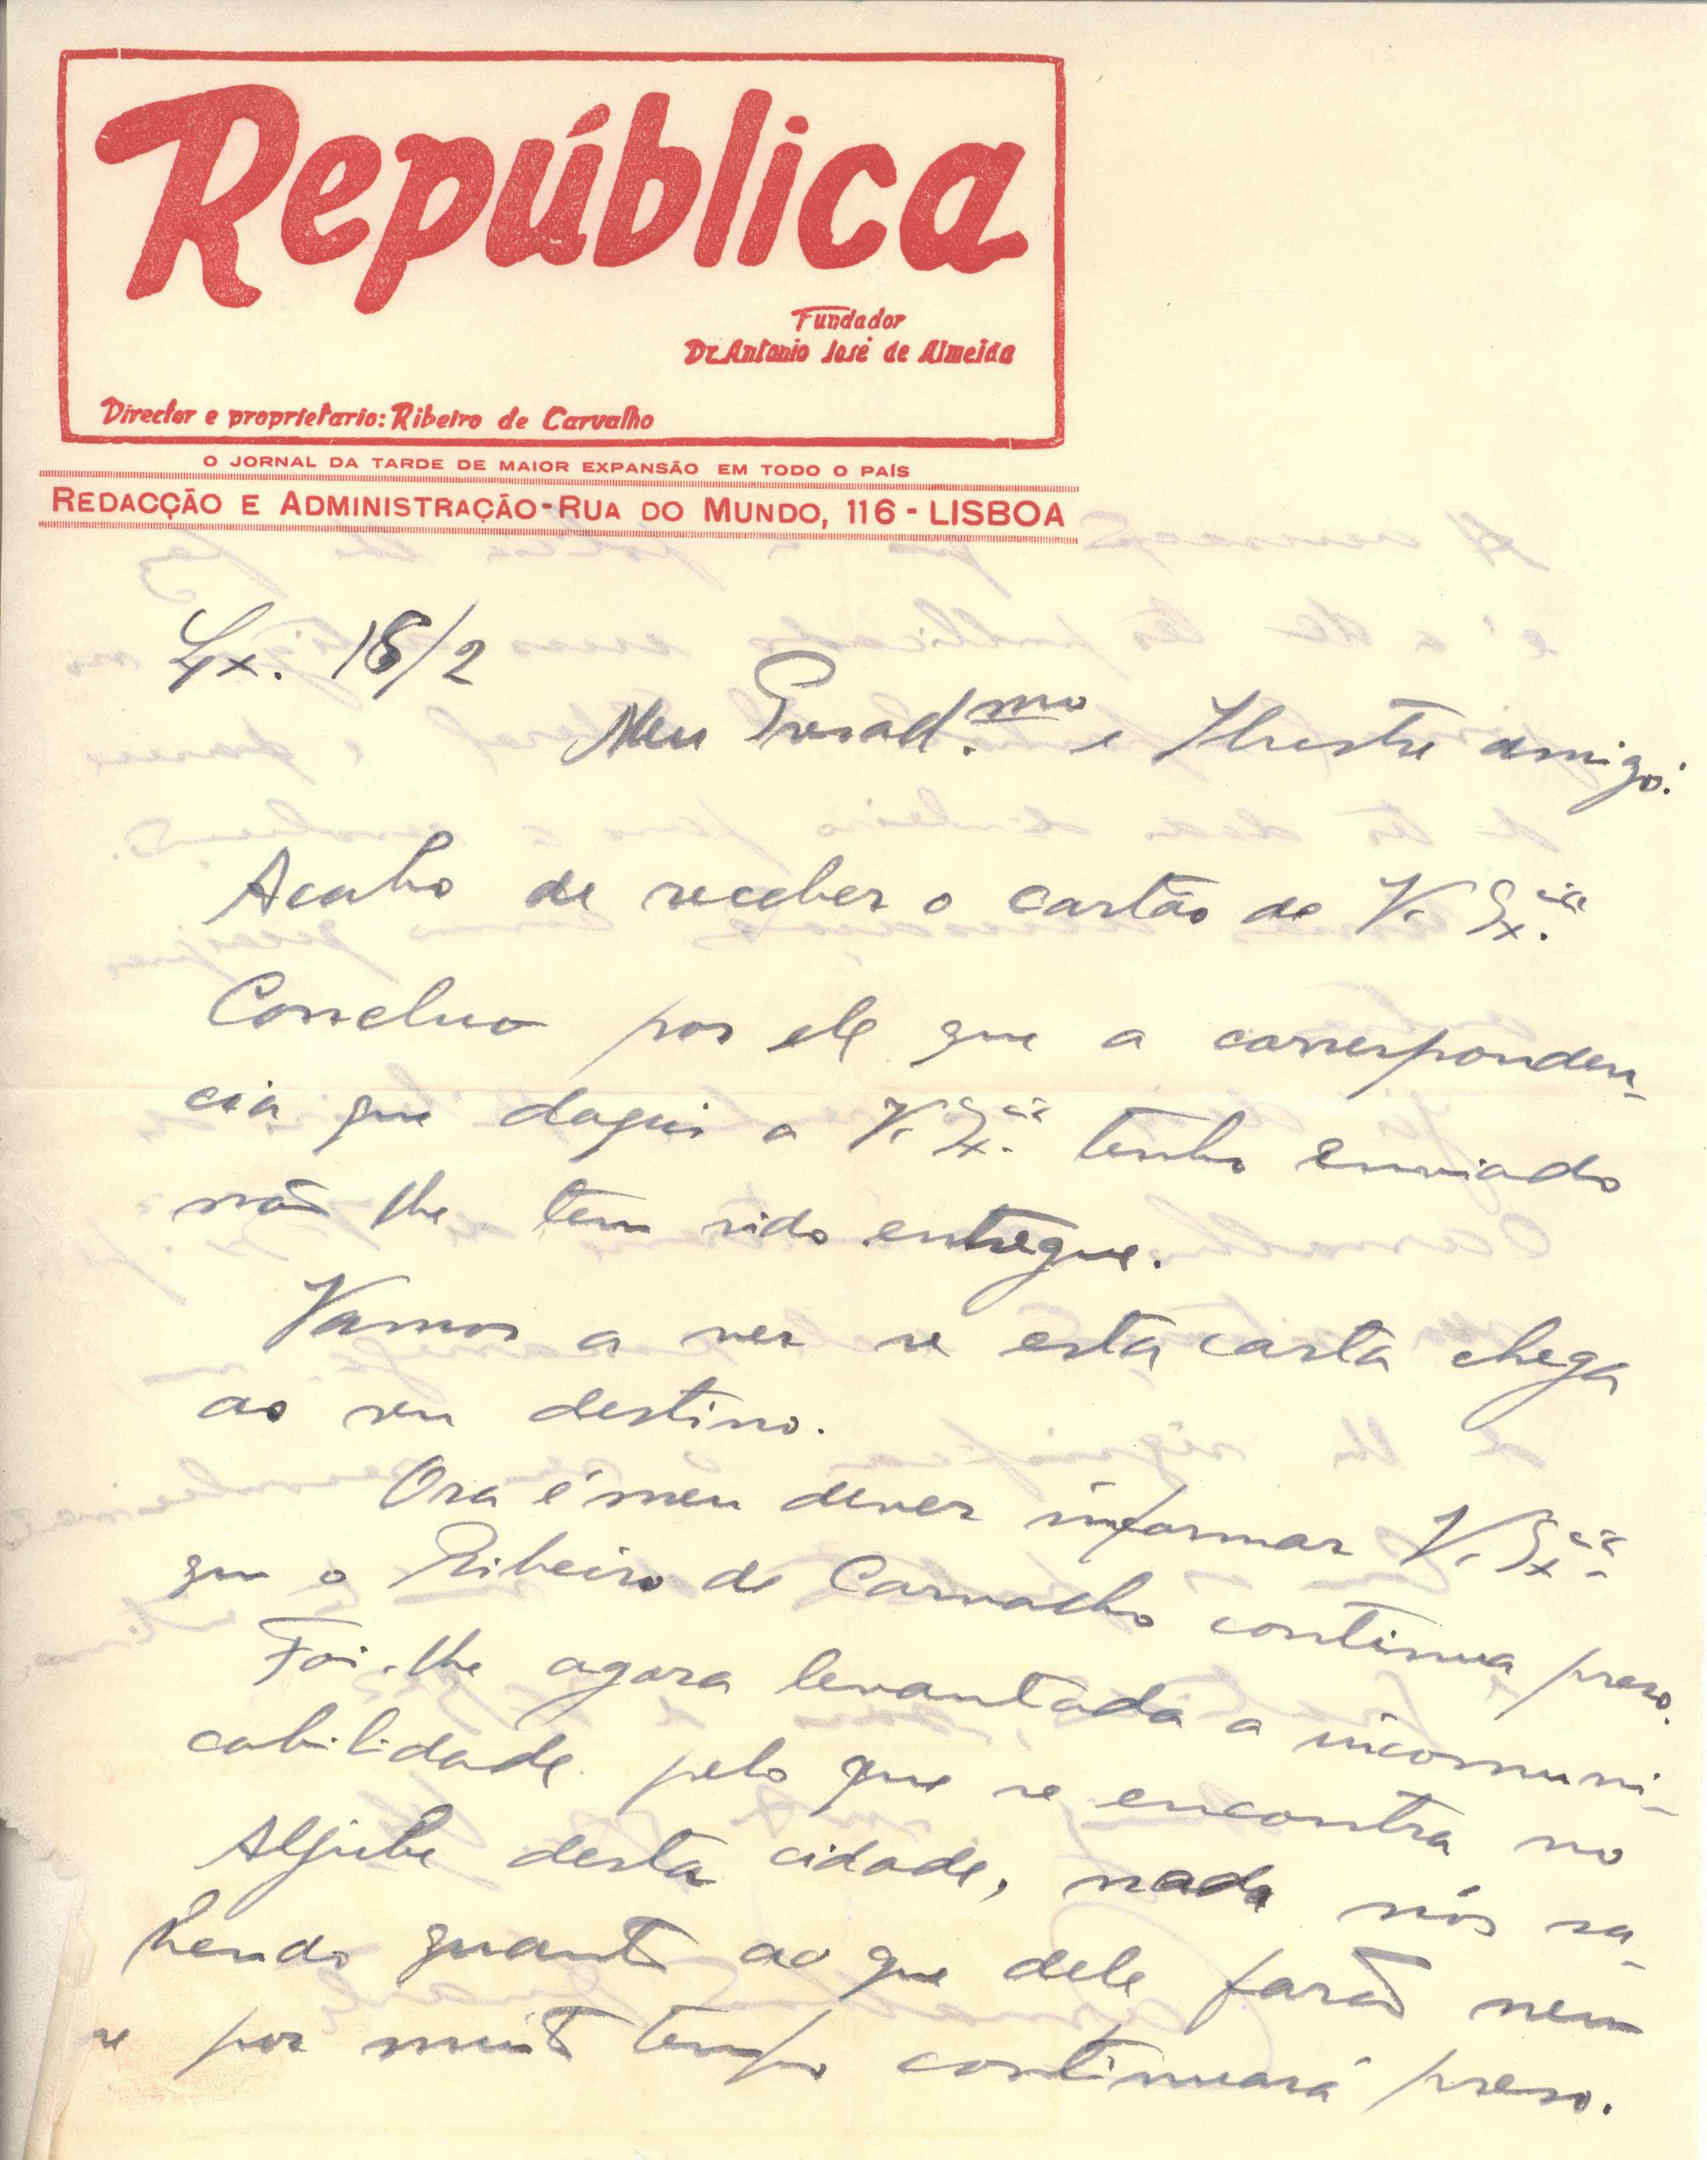 República
Fundador
Dr. Antonio José de Almeida
Director e proprietario: Ribeiro de Carvalho
O JORNAL DA TARDE DE MAIOR EXPANSÃO EM TODO O PAÍS
REDACÇÃO E ADMINISTRAÇÃO-RUA DO MUNDO, 116 - LISBOA
Lx. 18/2
Meu Presad.mo e Ilustre amigo:
Acabo de receber o cartão de V. Ex.cia
Concluo por ele que a corresponden-
cia que daqui a V. Ex.cia tenho enviado
não lhe tem sido entregue.
Vamos a ver se esta carta chega
ao seu destino.
Ora é meu dever informar V. Ex.cia
que o Ribeiro de Carvalho continua preso.
Foi-lhe agora levantada a incomuni-
cabilidade pelo que se encontra no
Aljube desta cidade, nada nós sa-
bendo quanto ao que dele farão nem
se por muito tempo continuará preso.